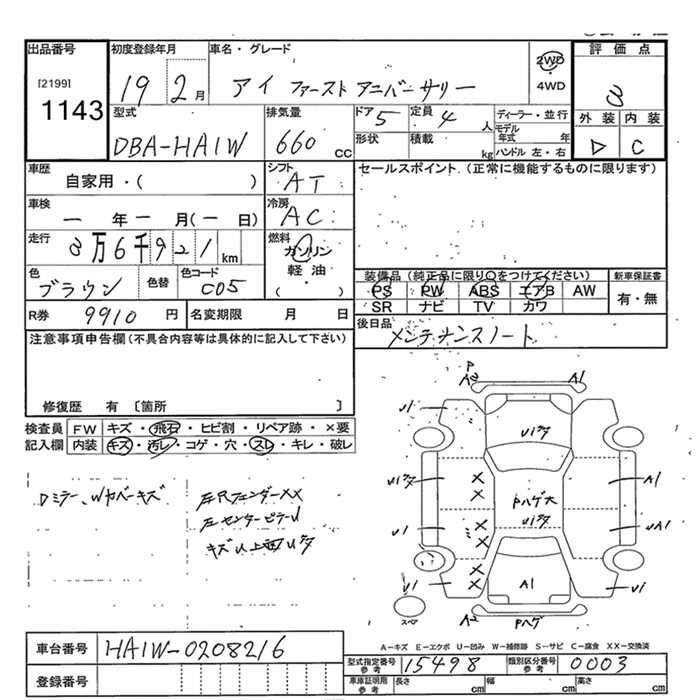 出品番号 初度登録年月 車名・グレード 評価点
[2199] 19 2月 アイ ファースト アニバーサリー 2WD 3
1143 4WD
型式 排気量 ドア 5 定員 4人 ディーラー・並行 外装 内装
DBA-HA1W 660cc 形状 積載 kg モデル年式 年 D C
ハンドル 左・右
車歴 シフト セールスポイント.(正常に機能するものに限ります)
自家用・( ) AT
車検 冷房
一年一月(一日) AC
走行 燃料
3万6千921km ガソリン
色 色替 色コード 軽油
ブラウン C05 ( )
装備品(純正品に限り○をつけてください) 新車保証書
PS PW ABS エアB AW 有・無
SR ナビ TV カワ
R券 9910円 名変期限 月 日 後日品 メンテナンスノート
注意事項申告欄(不具合内容等は具体的に記入して下さい)
修復歴 有 〔箇所 〕
検査員 FW キズ・飛石・ヒビ割・リペア跡・×要
記入欄 内装 キズ・汚レ・コゲ・穴・スレ・キレ・破レ
Dミラー、Wカバーキズ
左Rフェンダーxx
左センターピラーU
キズU 上面Uヌタ
A2 A1
U1 U1
A1
U1 UA1
Pハゲ大
U1 A1 U1
スペア A2 Pハゲ
A-キズ E-エクボ U-凹み W-補修跡 S-サビ C-腐食 XX-交換済
車台番号 HA1W-0208216
型式指定番号 参考 15498 類別区分番号 参考 0003
登録番号 車庫証明用 参考 長さ cm 幅 cm 高さ cm